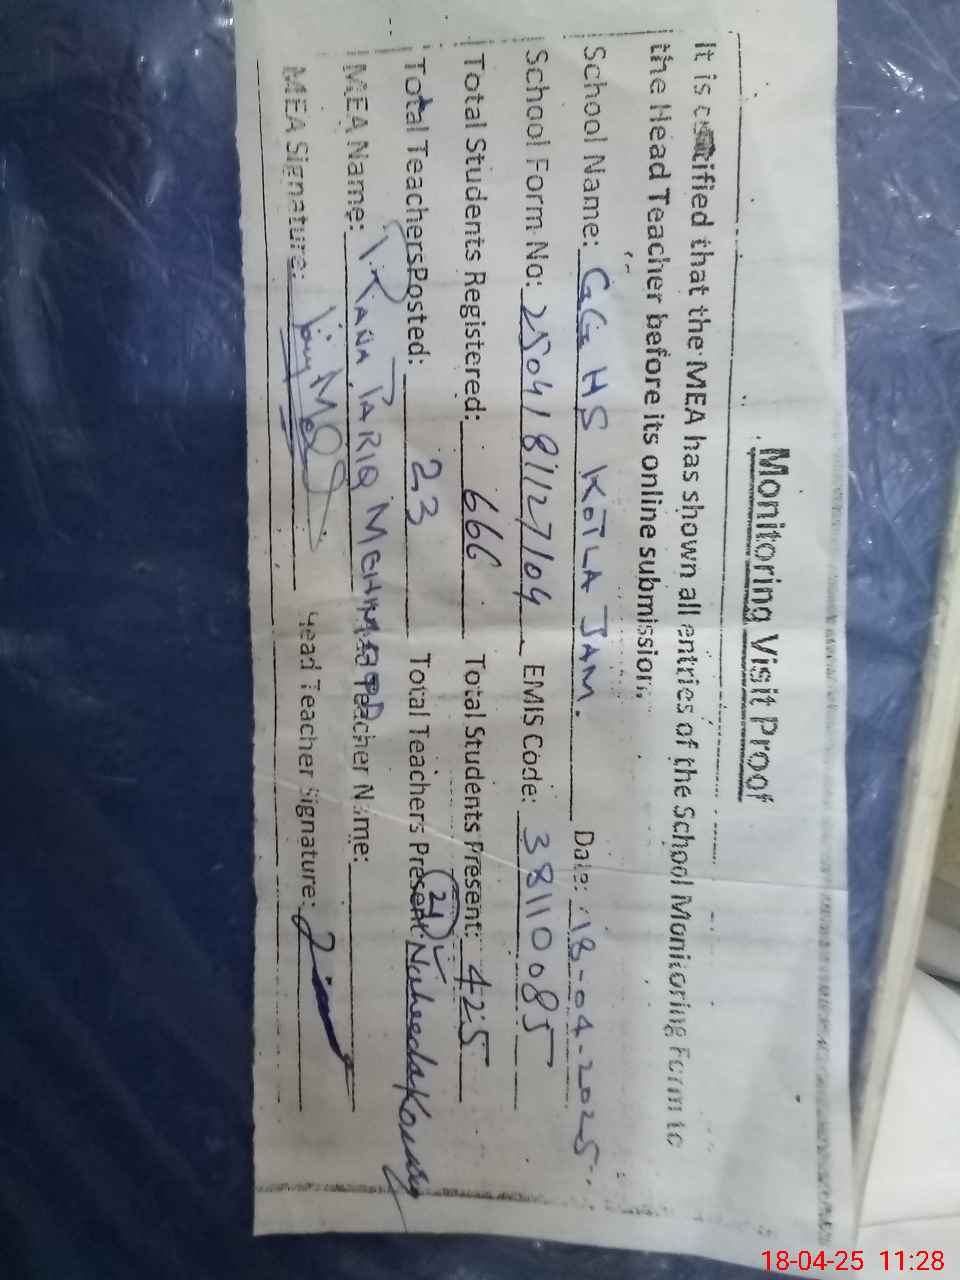 Monitoring Visit Proof
It is certified that the MEA has shown all entries of the School Monitoring Form to
the Head Teacher before its online submission.
School Name: GG HS KOTLA JAM. Date: 18-04-2025.
School Form No: 2504/8/127/04 EMIS Code: 38110085
Total Students Registered: 666 Total Students Present: 425
Total Teachers Posted: 23 Total Teachers Present: 21 Naheeda Kousar
MEA Name: RANA TARIQ MEHMOOD Teacher Name:
MEA Signature: Head Teacher Signature:
18-04-25 11:28